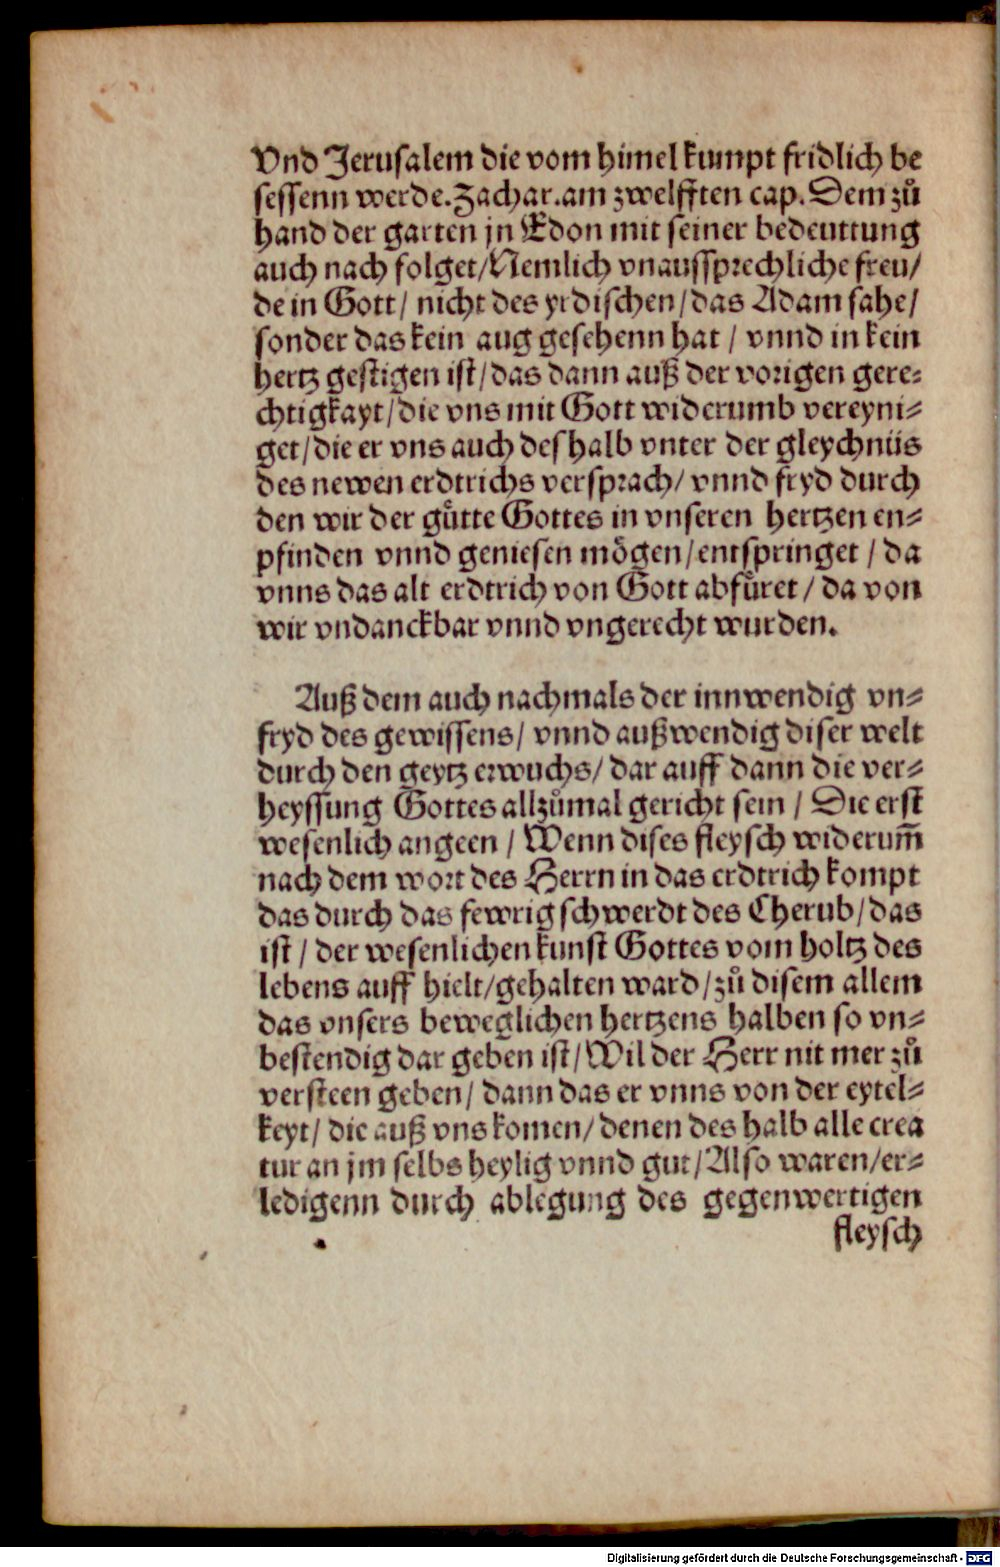 Vnd Jerusalem die vom himel kumpt fridlich be
sessenn werde. Zachar. am zwelfften cap. Dem zů
hand der garten jn Edon mit seiner bedeuttung
auch nach folget/ Nemlich vnaussprechliche freu/
de in Gott/ nicht des yrdischen/ das Adam sahe/
sonder das kein aug gesehenn hat / vnnd in kein
hertz gestigen ist/ das dann auß der vorigen gere⸗
chtigkayt/ die vns mit Gott widerumb vereyni⸗
get/ die er vns auch deshalb vnter der gleychnüs
des newen erdtrichs versprach/ vnnd fryd durch
den wir der gůtte Gottes in vnseren hertzen en⸗
pfinden vnnd geniesen mögen/ entspringet / da
vnns das alt erdtrich von Gott abfůret / da von
wir vndanckbar vnnd vngerecht wurden.
Auß dem auch nachmals der innwendig vn⸗
fryd des gewissens/ vnnd außwendig diser welt
durch den geytz erwuchs/ dar auff dann die ver⸗
heyssung Gottes allzůmal gericht sein / Die erst
wesenlich angeen / Wenn dises fleysch widerum̄
nach dem wort des Herrn in das erdtrich kompt
das durch das fewrig schwerdt des Cherub/ das
ist / der wesenlichen kunst Gottes vom holtz des
lebens auff hielt/ gehalten ward/ zů disem allem
das vnsers beweglichen hertzens halben so vn⸗
bestendig dar geben ist/ Wil der Herr nit mer zů
versteen geben/ dann das er vnns von der eytel⸗
keyt/ die auß vns komen/ denen des halb alle crea
tur an jm selbs heylig vnnd gut/ Also waren/ er⸗
ledigenn durch ablegung des gegenwertigen
fleysch
Digitalisierung gefördert durch die Deutsche Forschungsgemeinschaft - DFG